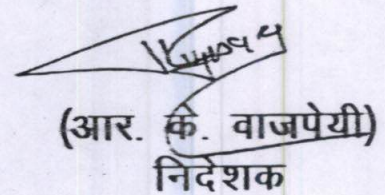 (आर. के. वाजपेयी)
निदेशक